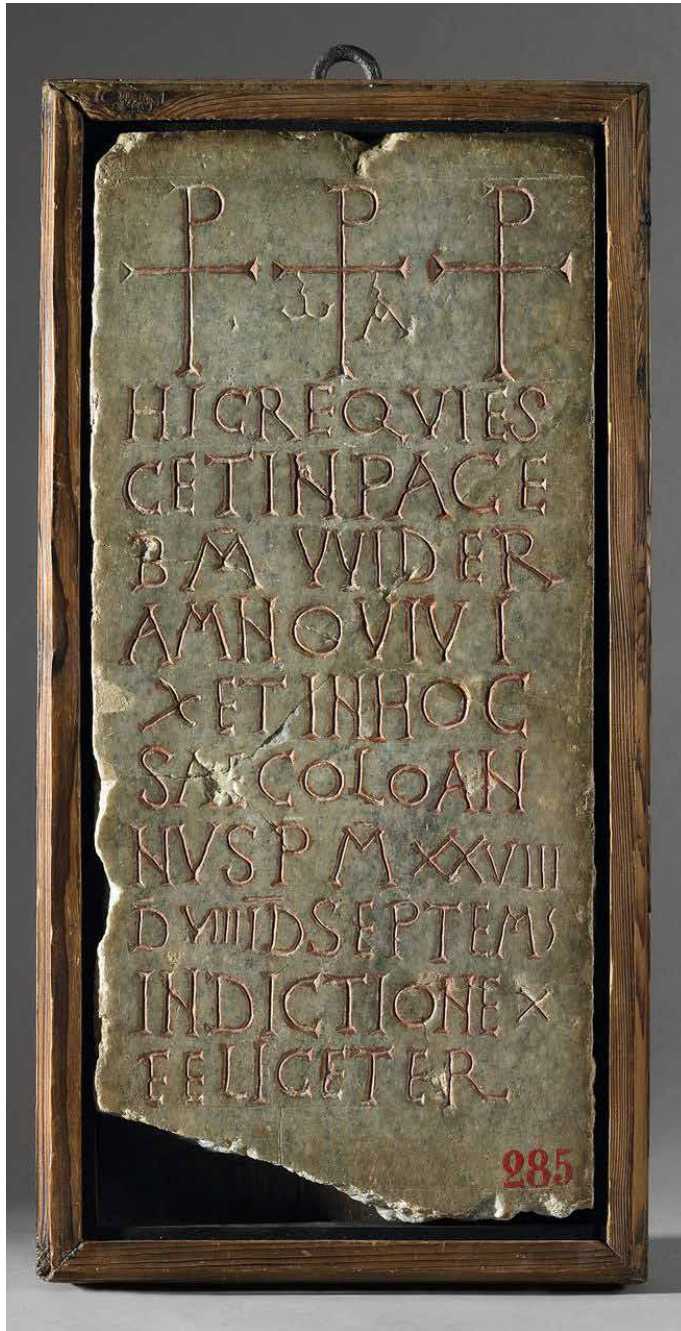 ⳨ ⳨ ⳨
ω Α
HICREQVIES
CETINPACE
B̄ M̄ VVIDER
AMNOVIVI
XETINHOC
SAECOLOAN
NVSP M̄ XXVIII
D̄ VIIII ĪDSEPTEMS
INDICTIONE X
FELICETER
285